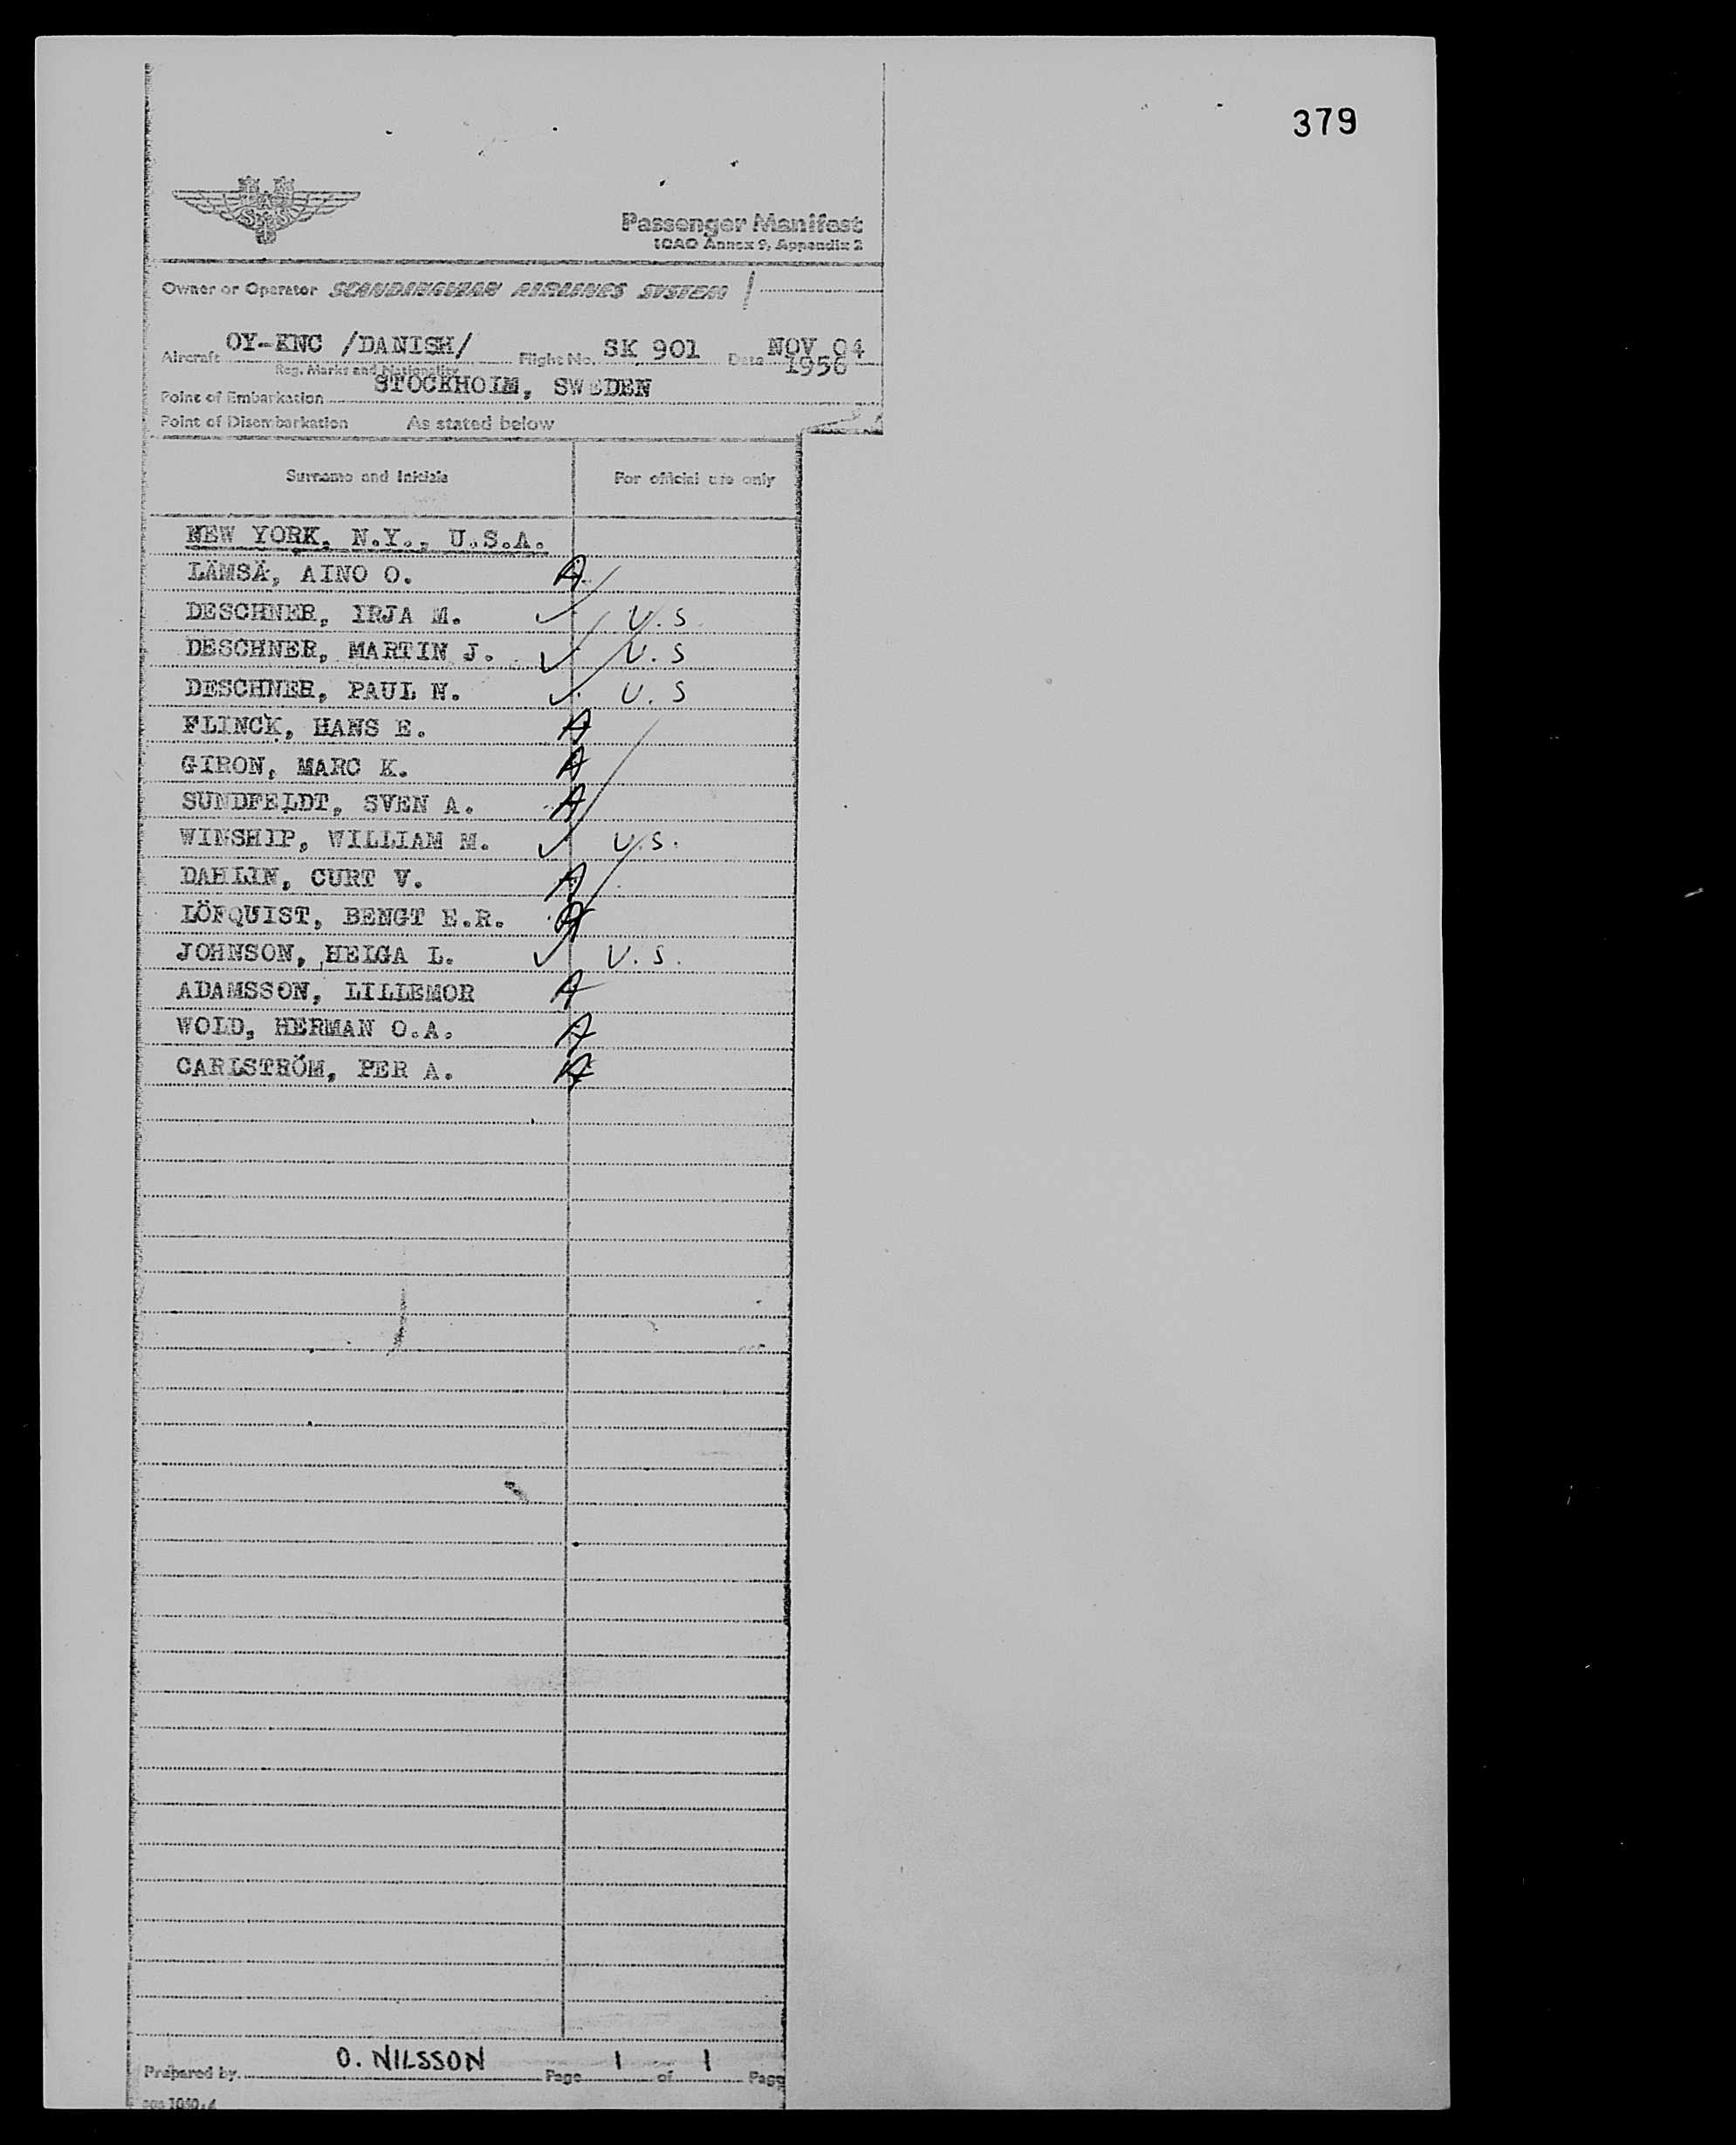 379
SAS
Passenger Manifest
ICAO Annex 9, Appendix 2
Owner or Operator SCANDINAVIAN AIRLINES SYSTEM
Aircraft OY-KNC /DANISH/ Flight No. SK 901 Date NOV 04 1956
Reg. Marks and Nationality
Point of Embarkation STOCKHOLM, SWEDEN
Point of Disembarkation As stated below
Surname and Initials For official use only
NEW YORK, N.Y., U.S.A.
LÄMSÄ, AINO O. A
DESCHNER, IRJA M. ✓ U.S.
DESCHNER, MARTIN J. ✓ U.S
DESCHNER, PAUL N. ✓ U.S
FLINCK, HANS E. A
GIRON, MARC K. A
SUNDFELDT, SVEN A. A
WINSHIP, WILLIAM M. ✓ U.S.
DAHLIN, CURT V. A
LÖFQUIST, BENGT E.R. A
JOHNSON, HELGA L. ✓ U.S.
ADAMSSON, LILLEMOR A
WOLD, HERMAN O.A. A
CARLSTRÖM, PER A. A
Prepared by O. NILSSON Page 1 of 1 Page